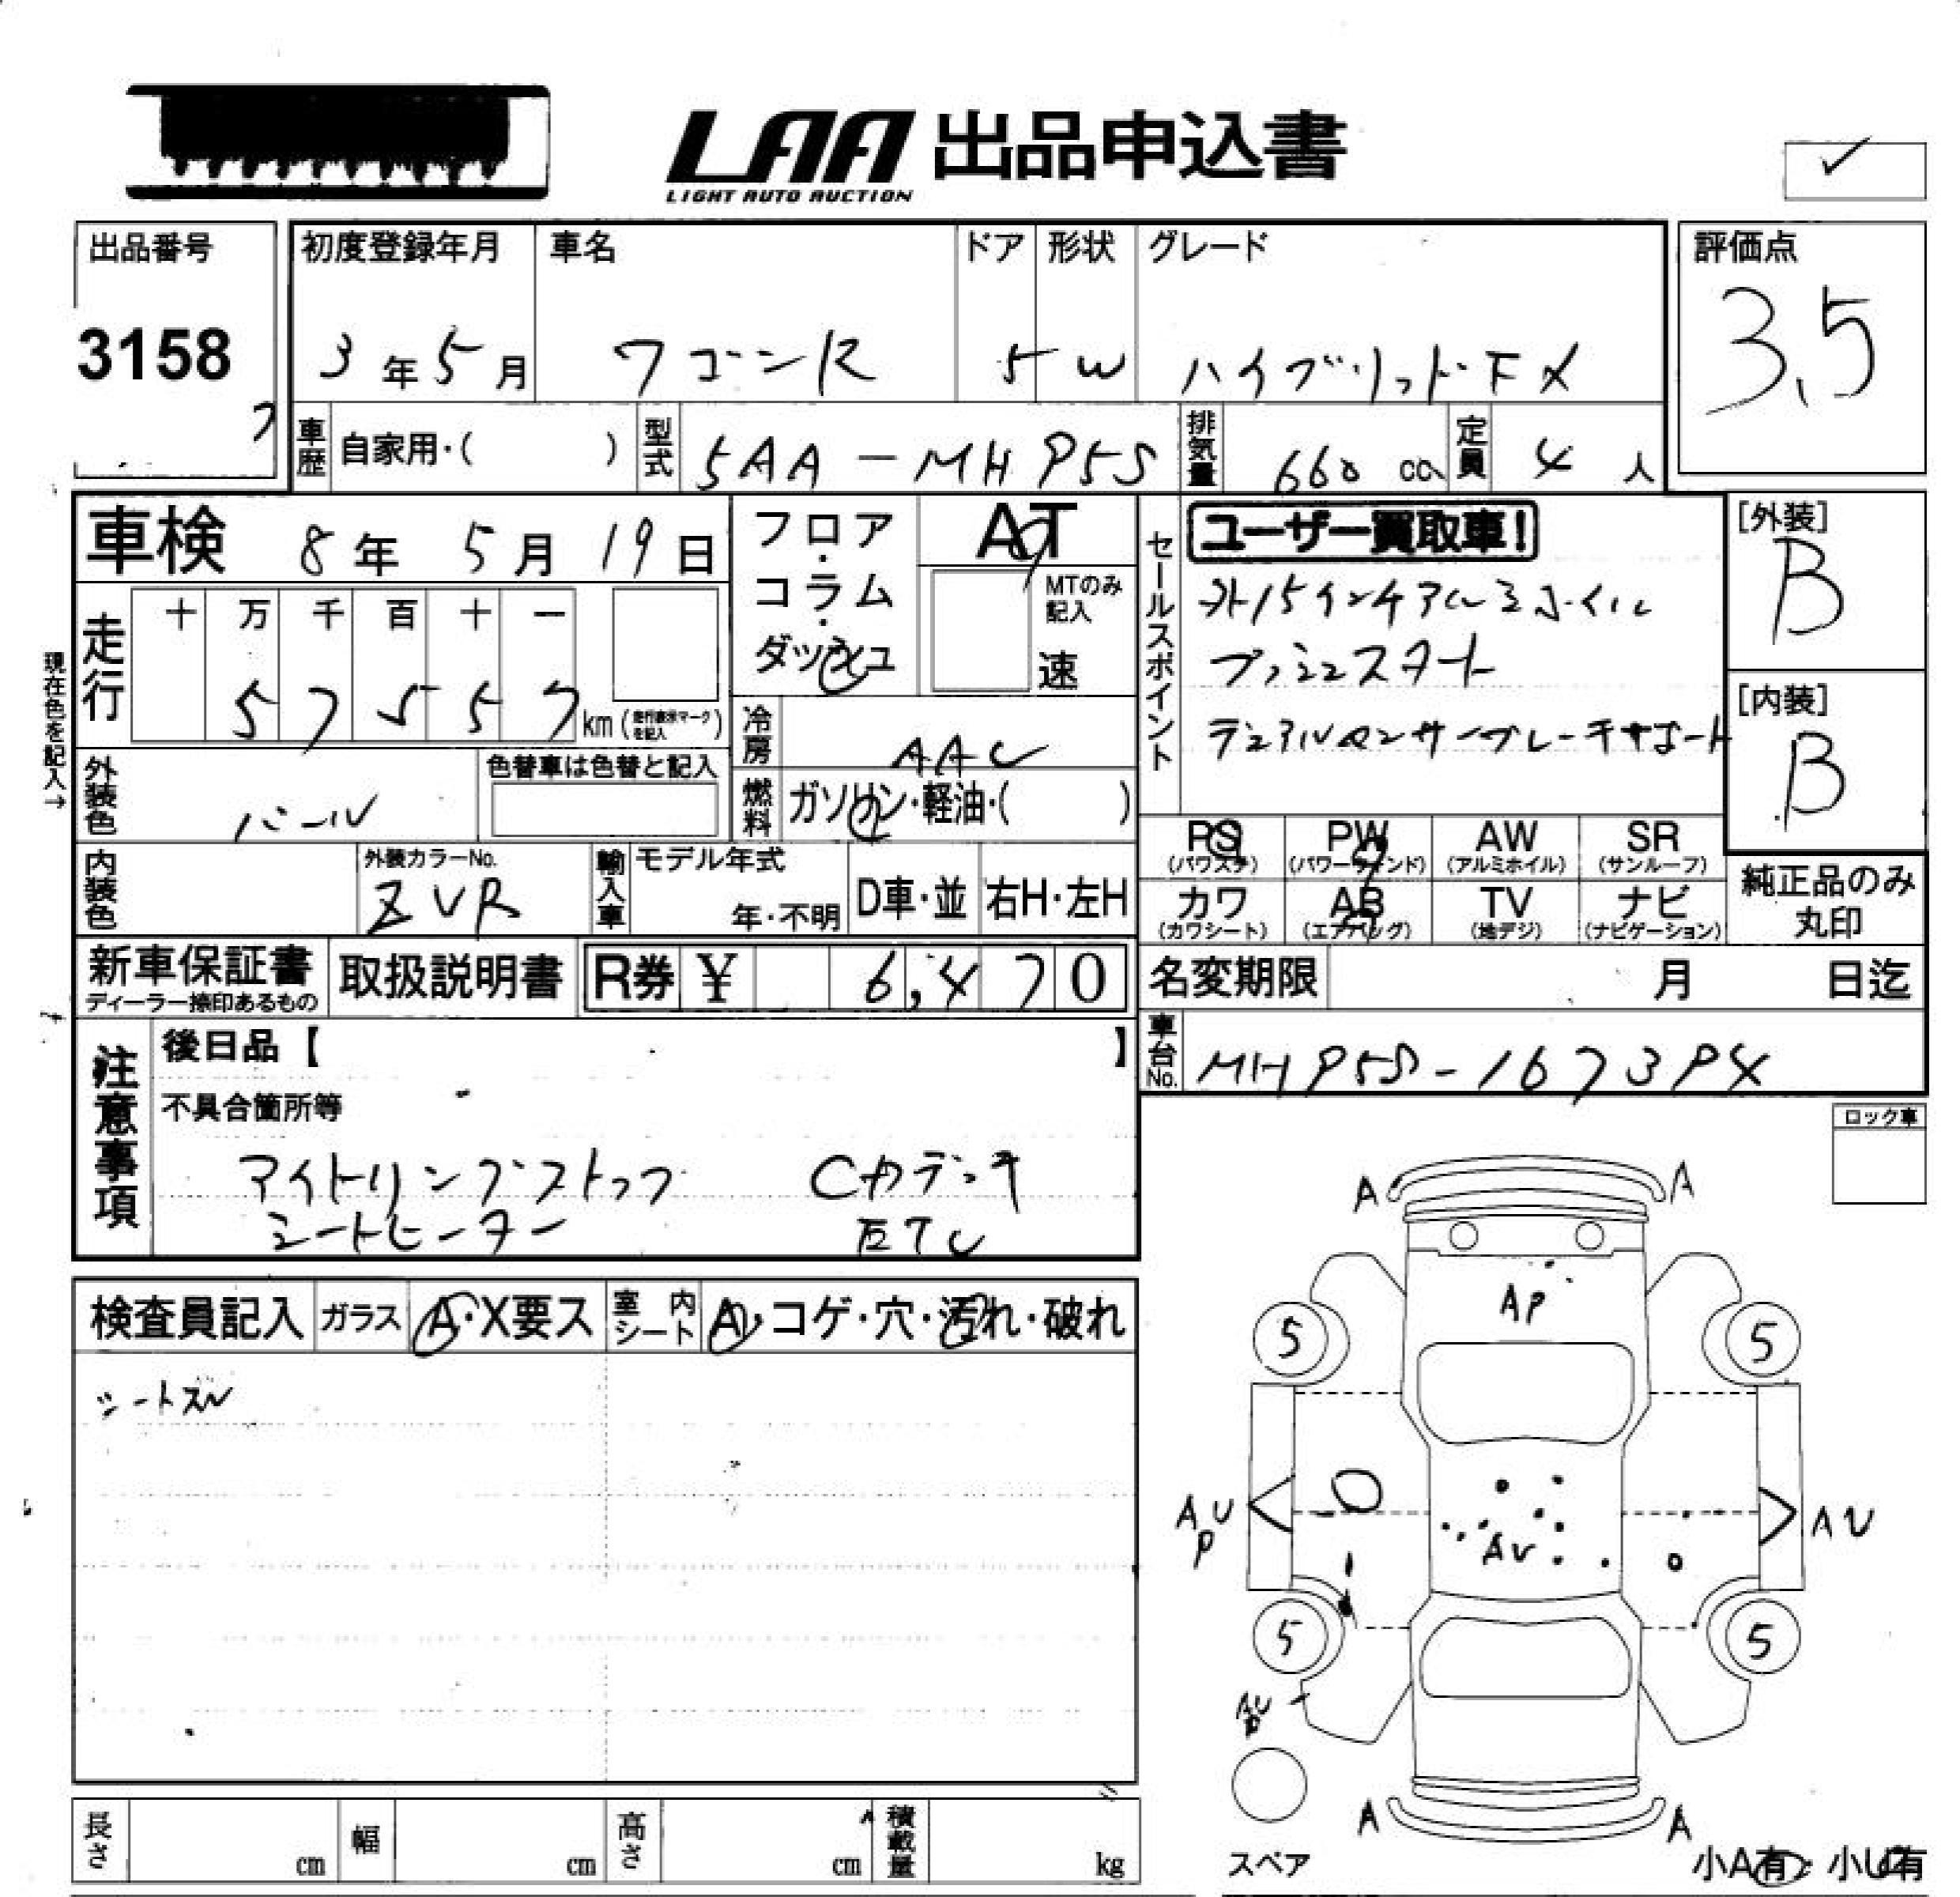 LAA 出品申込書
LIGHT AUTO AUCTION
✓
出品番号
3158
初度登録年月
3年5月
車名
ワゴンR
ドア
5
形状
W
グレード
ハイブリッドFX
評価点
3.5
車歴
自家用・( )
型式
5AA-MH95S
排気量
660 cc
定員
4 人
車検 8年 5月 19日
フロア・コラム・ダッシュ
AT
MTのみ記入
速
セールスポイント
ユーザー買取車!
外15インチアルミホイル
プッシュスタート
デュアルセンサーブレーキサポート
[外装]
B
[内装]
B
現在色を記入→
走行
十 万 千 百 十 一
5 7 5 5 7 km (走行直米マークを記入)
冷房
AAC
外装色
パール
色替車は色替と記入
燃料
ガソリン・軽油・( )
PS (パワステ)
PW (パワーウィンド)
AW (アルミホイル)
SR (サンルーフ)
カワ (カワシート)
AB (エアバッグ)
TV (地デジ)
ナビ (ナビゲーション)
純正品のみ丸印
内装色
外装カラーNo.
ZVR
輸入車
モデル年式
年・不明
D車・並
右H・左H
新車保証書
ディーラー捺印あるもの
取扱説明書
R券 ¥ 6,470
名変期限 月 日迄
車台No.
MH95S-167394
注意事項
後日品【 】
不具合箇所等
アイドリングストップ CDデッキ
シートヒーター ETC
ロック車
検査員記入
ガラス
A・X要ス
室内シート
A・コゲ・穴・汚れ・破れ
シートスレ
A A
AP
5 5
AU
P
AU
AU
5 5
AU
P
スペア
A A
小A有・小U有
長さ cm
幅 cm
高さ cm
積載量 kg